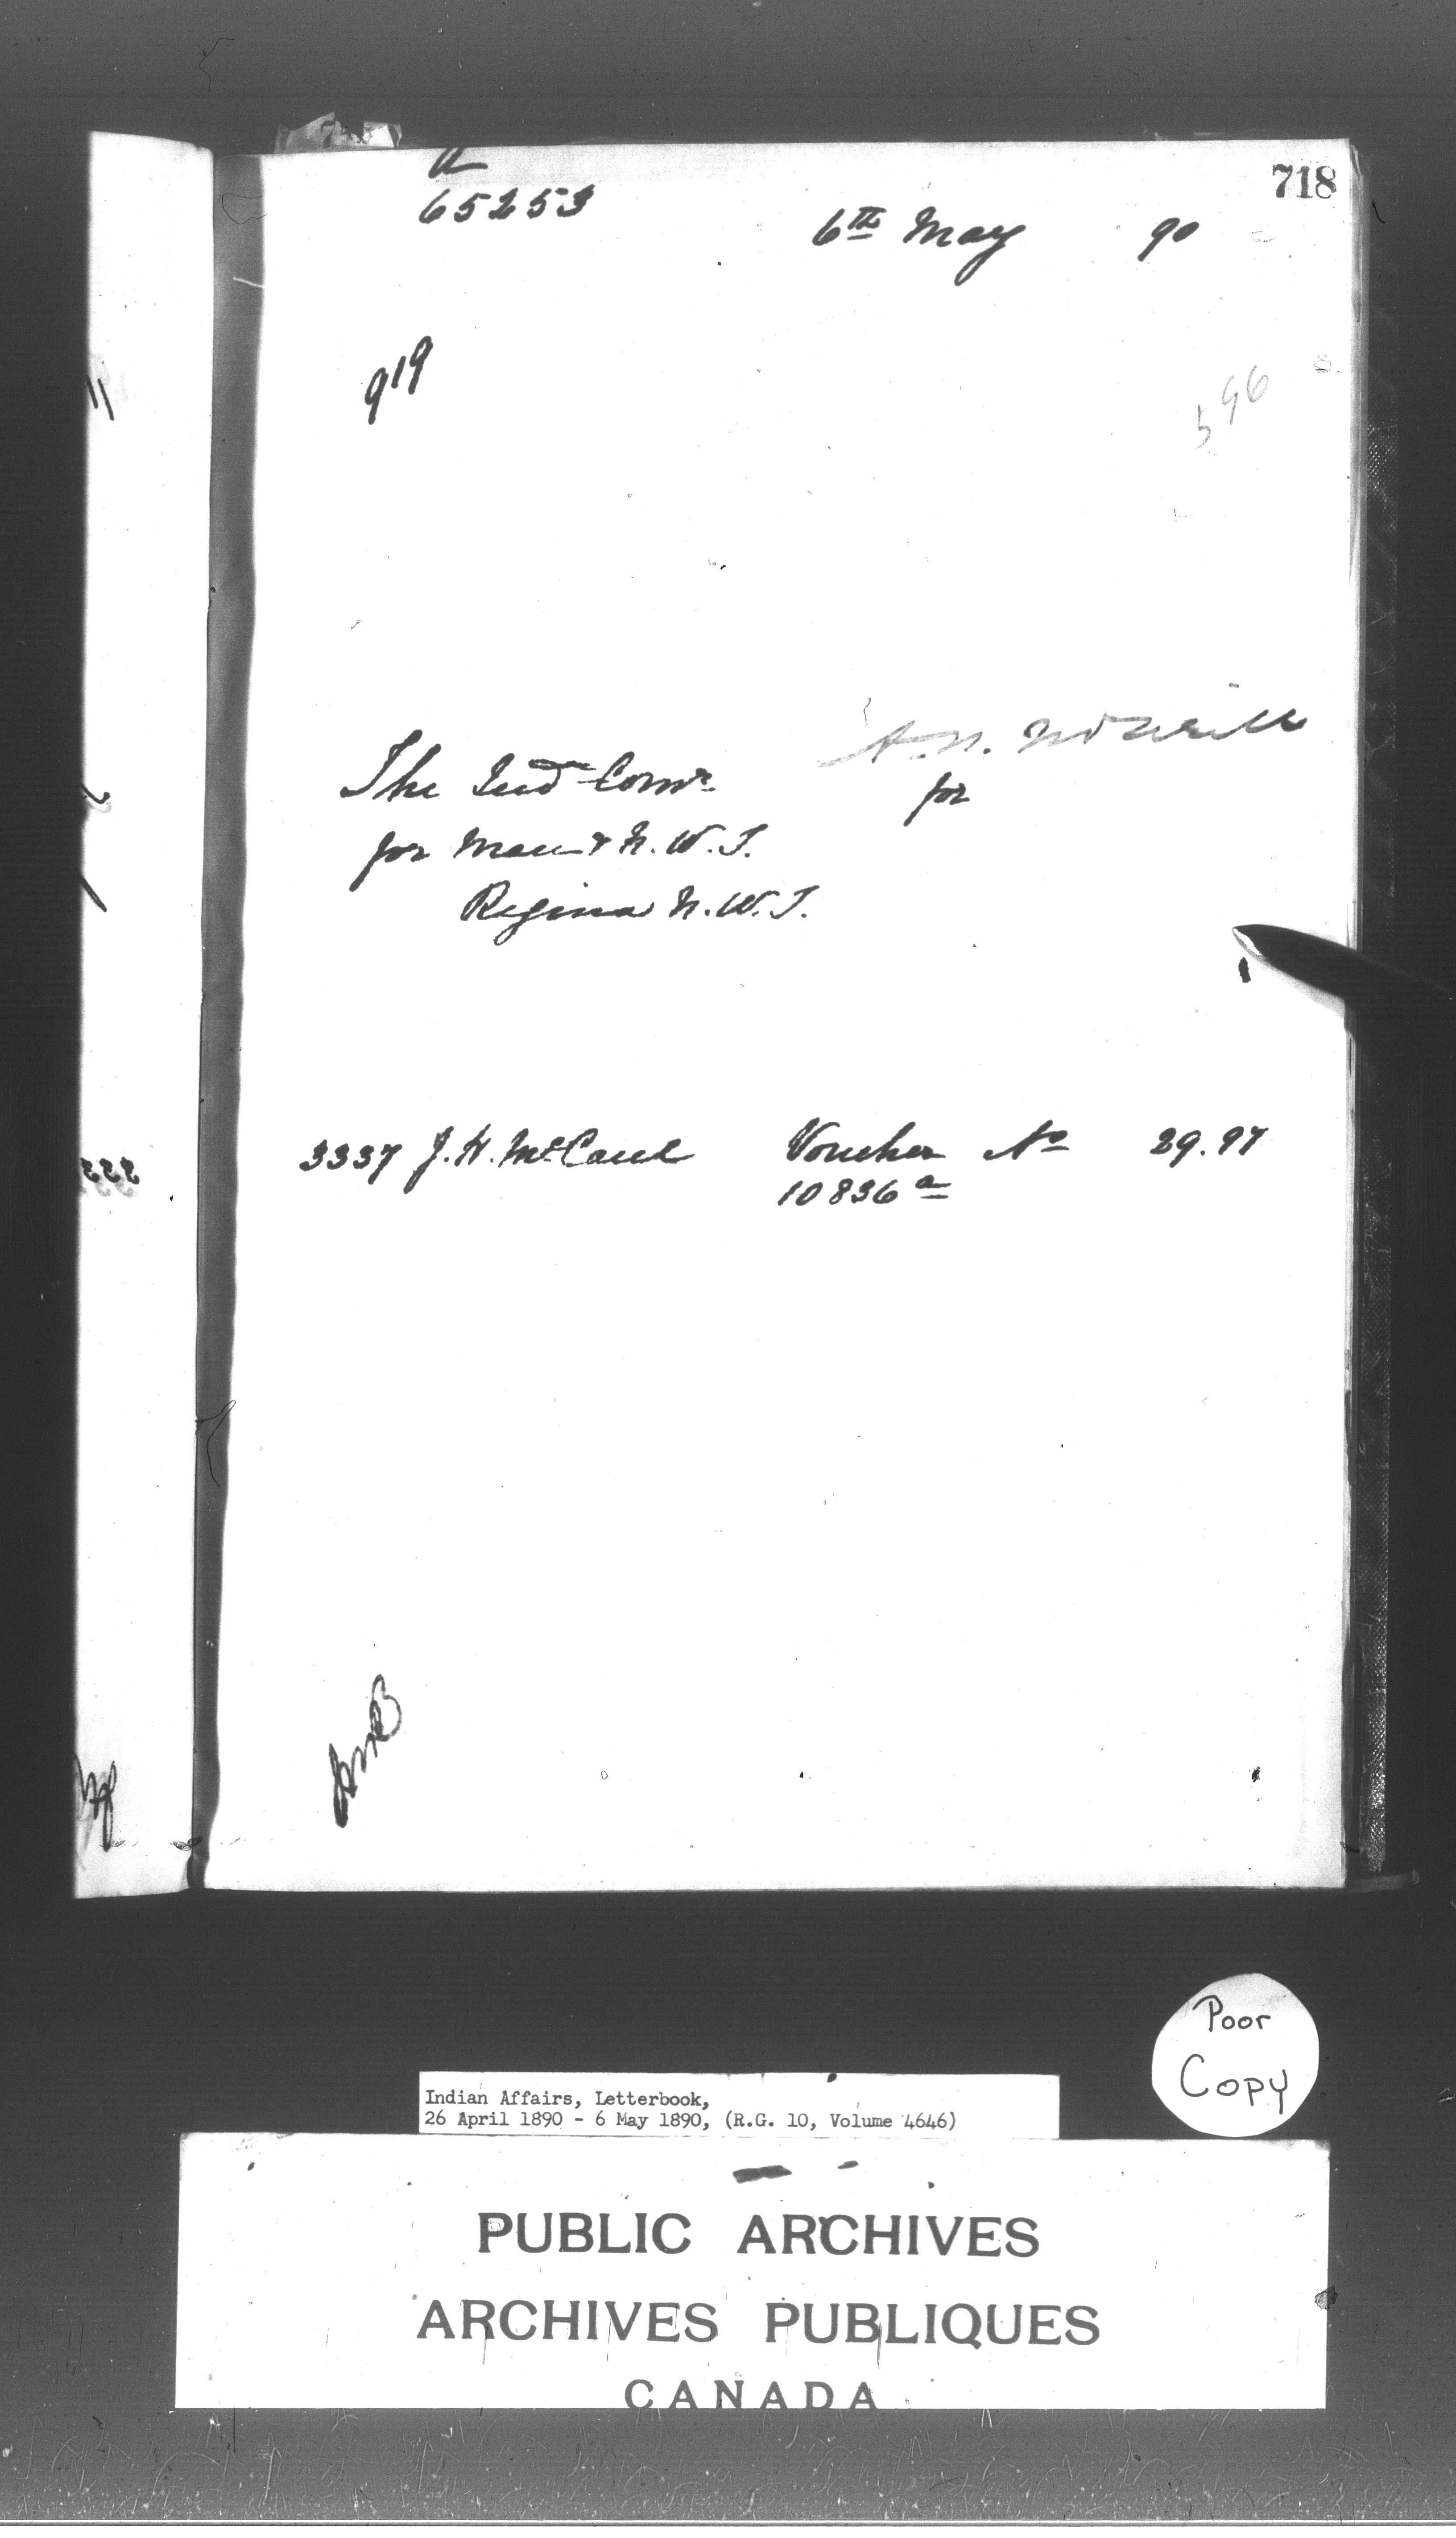 718
a
65253
6th May 90
919
596
A. N. McNeill
for
The Ind Comr
for Man & N.W.T.
Regina N.W.T.
3337 J. H. McCaul Voucher No 29.97
10836 a
Poor
Copy
Indian Affairs, Letterbook,
26 April 1890 - 6 May 1890, (R.G. 10, Volume 4646)
PUBLIC ARCHIVES
ARCHIVES PUBLIQUES
CANADA